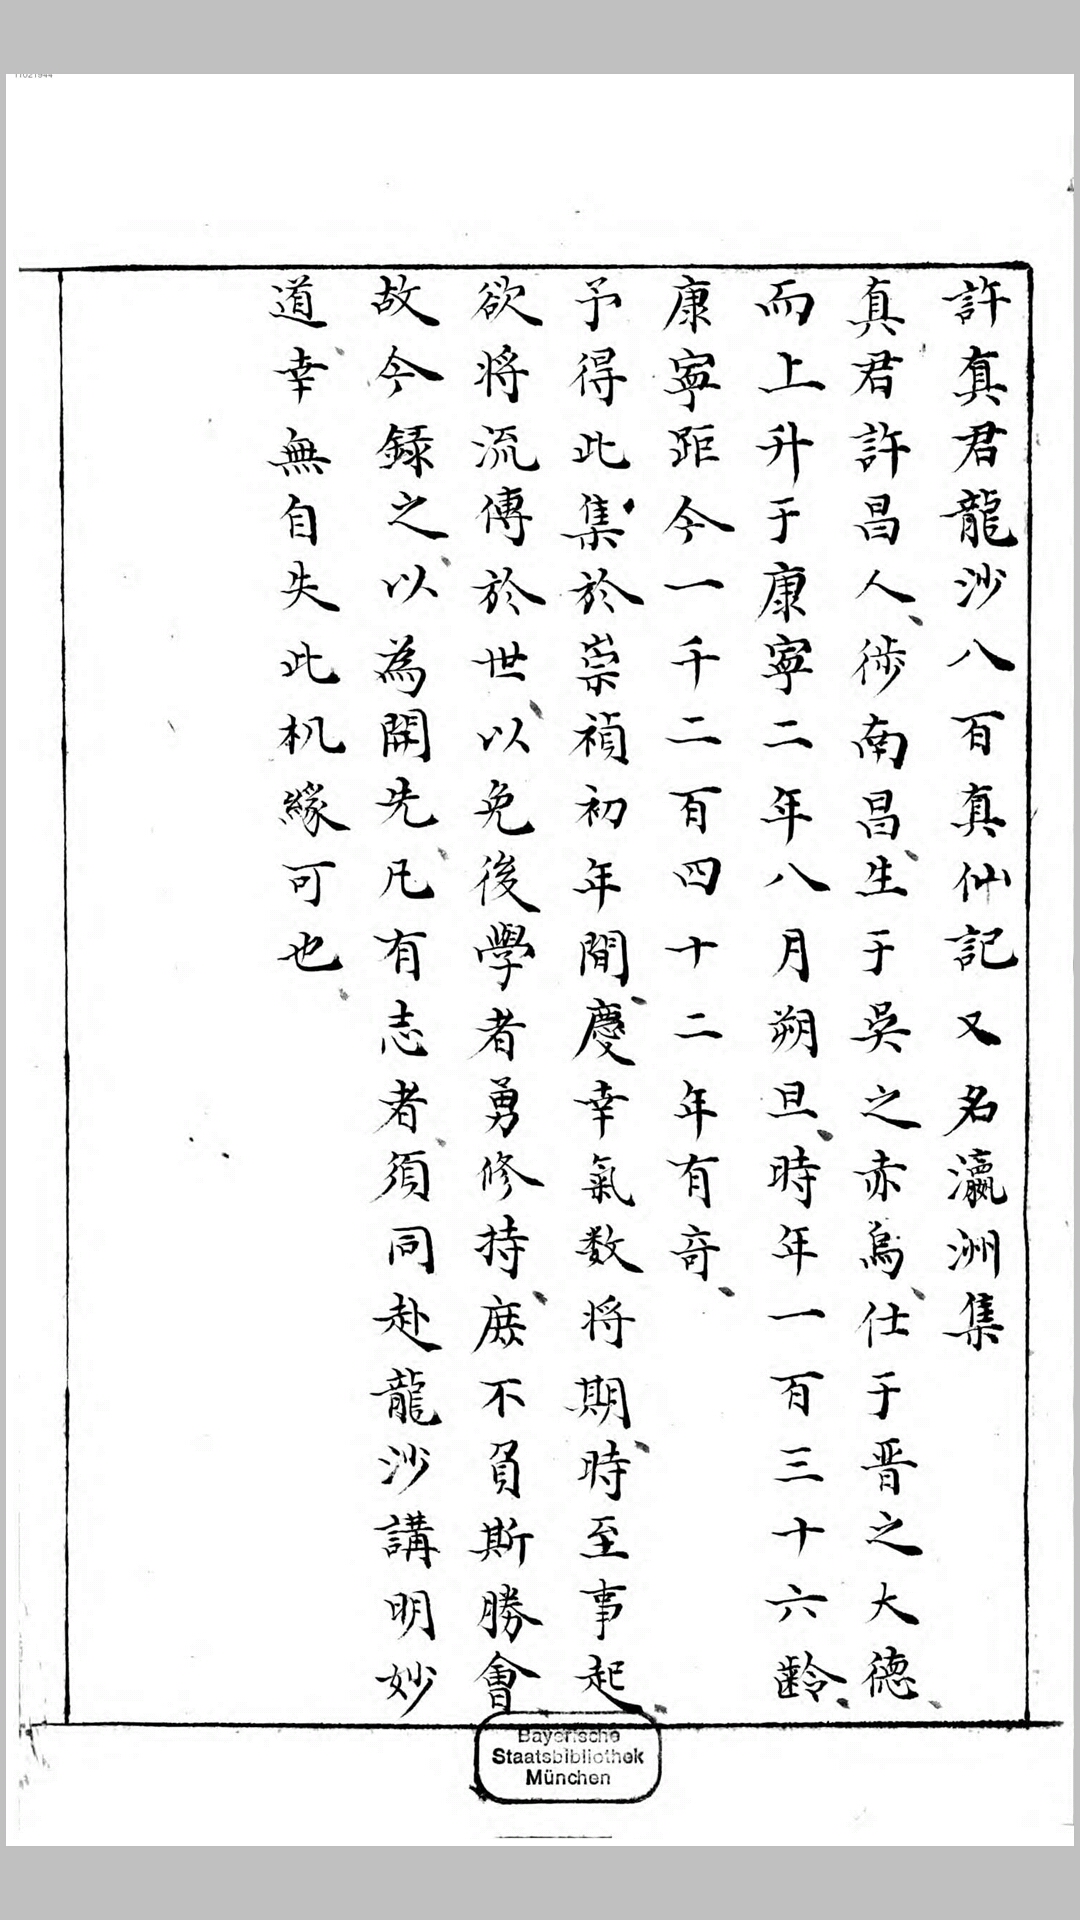 許真君龍沙八百真仙記又名瀛洲集
真君許昌人、徙南昌、生于吳之赤烏、仕于晋之大德、
而上升于康寧二年八月朔旦、時年一百三十六齡、
康寧距今一千二百四十二年有竒、
予得此集於崇禎初年間、慶幸氣数将期、時至事起、
欲将流傳於世、以免後學者勇修持、庶不負斯勝會
故今録之、以為開先、凡有志者、須同赴龍沙講明妙
道、幸無自失此机緣可也、
Bayerische
Staatsbibliothek
München